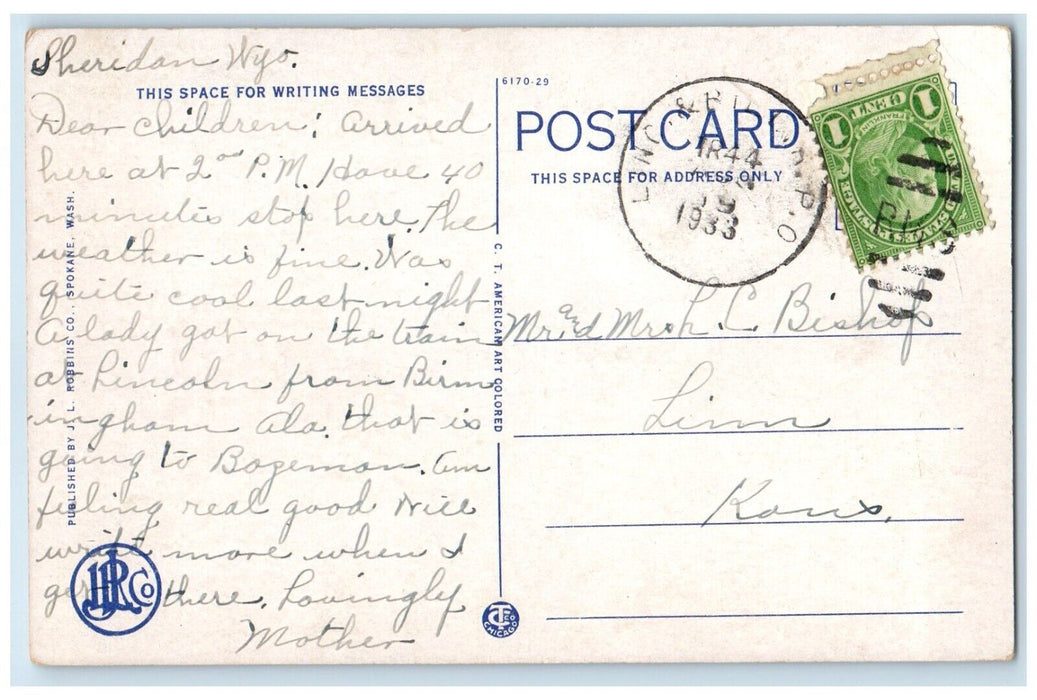 Sheridan Wyo.
THIS SPACE FOR WRITING MESSAGES
Dear Children: Arrived
here at 2 P.M. Have 40
minutes stop here. The
weather is fine. Was
quite cool last night
A lady got on the train
at Lincoln from Birm
ingham Ala. that is
going to Bozeman. Am
feeling real good Will
write more when I
get there. Lovingly
Mother
PUBLISHED BY J. L. ROBBINS CO., SPOKANE, WASH.
JLR Co
6170-29
POST CARD
THIS SPACE FOR ADDRESS ONLY
C. T. AMERICAN ART COLORED
CT CO CHICAGO
TR 44
1933
R.P.O
1 ONE CENT 1
FRANKLIN
UNITED STATES POSTAGE
Mr. and Mrs. L. C. Bishop
Linn
Kans.